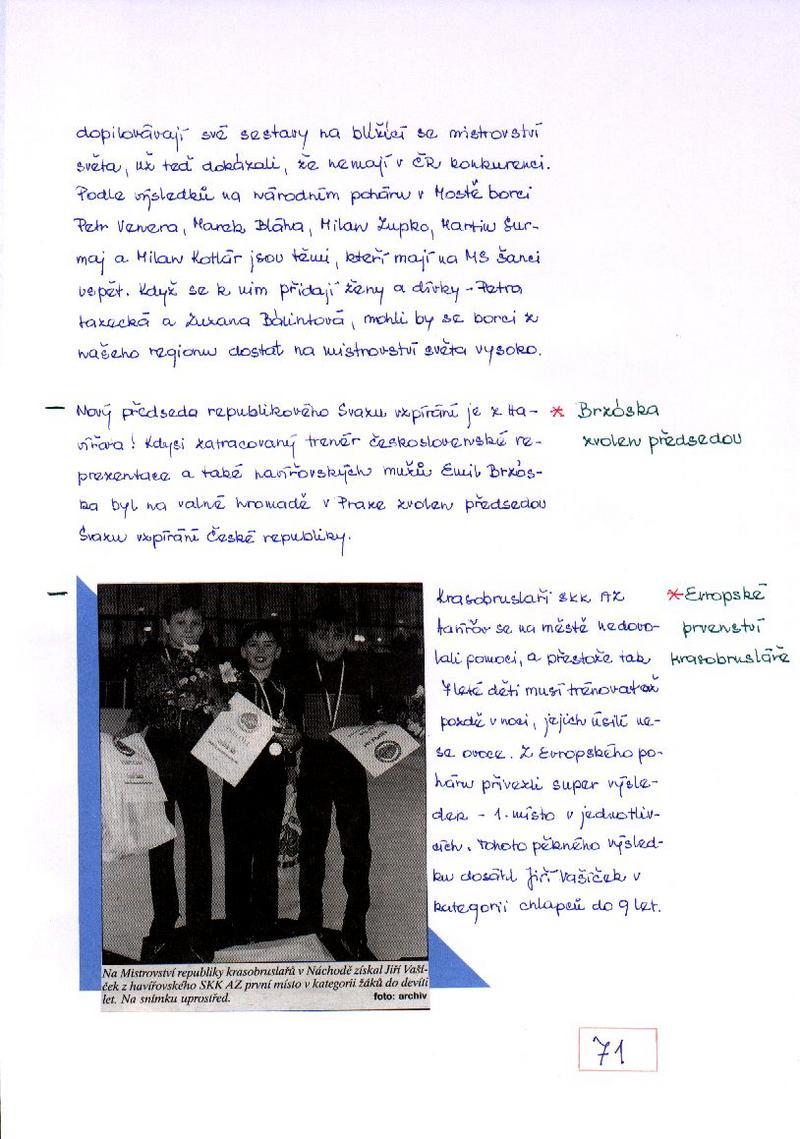 dopilovávají své sestavy na blížící se mistrovství
světa, už teď dokázali, že nemají v ČR konkurenci.
Podle výsledků na národním poháru v Mostě borci
Petr Venera, Marek Bláha, Milan Župko, Martin Šur-
maj a Milan Kotlár jsou těmi, kteří mají na MS šanci
uspět. Když se k nim přidají ženy a dívky - Petra
a Zuzana Bálintová, mohli by se borci z
našeho regionu dostat na mistrovství světa vysoko.
— Nový předseda republikového Svazu vzpírání je z Ha-
vířova! Kdysi zatracovaný trenér československé re-
prezentace a také havířovských mužů Emil Brzós-
ka byl na valné hromadě v Praze zvolen předsedou
Svazu vzpírání České republiky.
* Brzóska
zvolen předsedou
— Krasobruslaři SKK AZ
Havířov se na městě nedovo-
lali pomoci, a přestože tak
7leté děti musí trénovat až
pozdě v noci, jejich úsilí ne-
se ovoce. Z Evropského po-
háru přivezli super výsle-
dek - 1. místo v jednotliv-
cích. Tohoto pěkného výsled-
ku dosáhl Jiří Vašíček v
kategorii chlapců do 9 let.
* Evropské
prvenství
krasobruslaře
Na Mistrovství republiky krasobruslařů v Náchodě získal Jiří Vaší-
ček z havířovského SKK AZ první místo v kategorii žáků do devíti
let. Na snímku uprostřed. foto: archiv
71